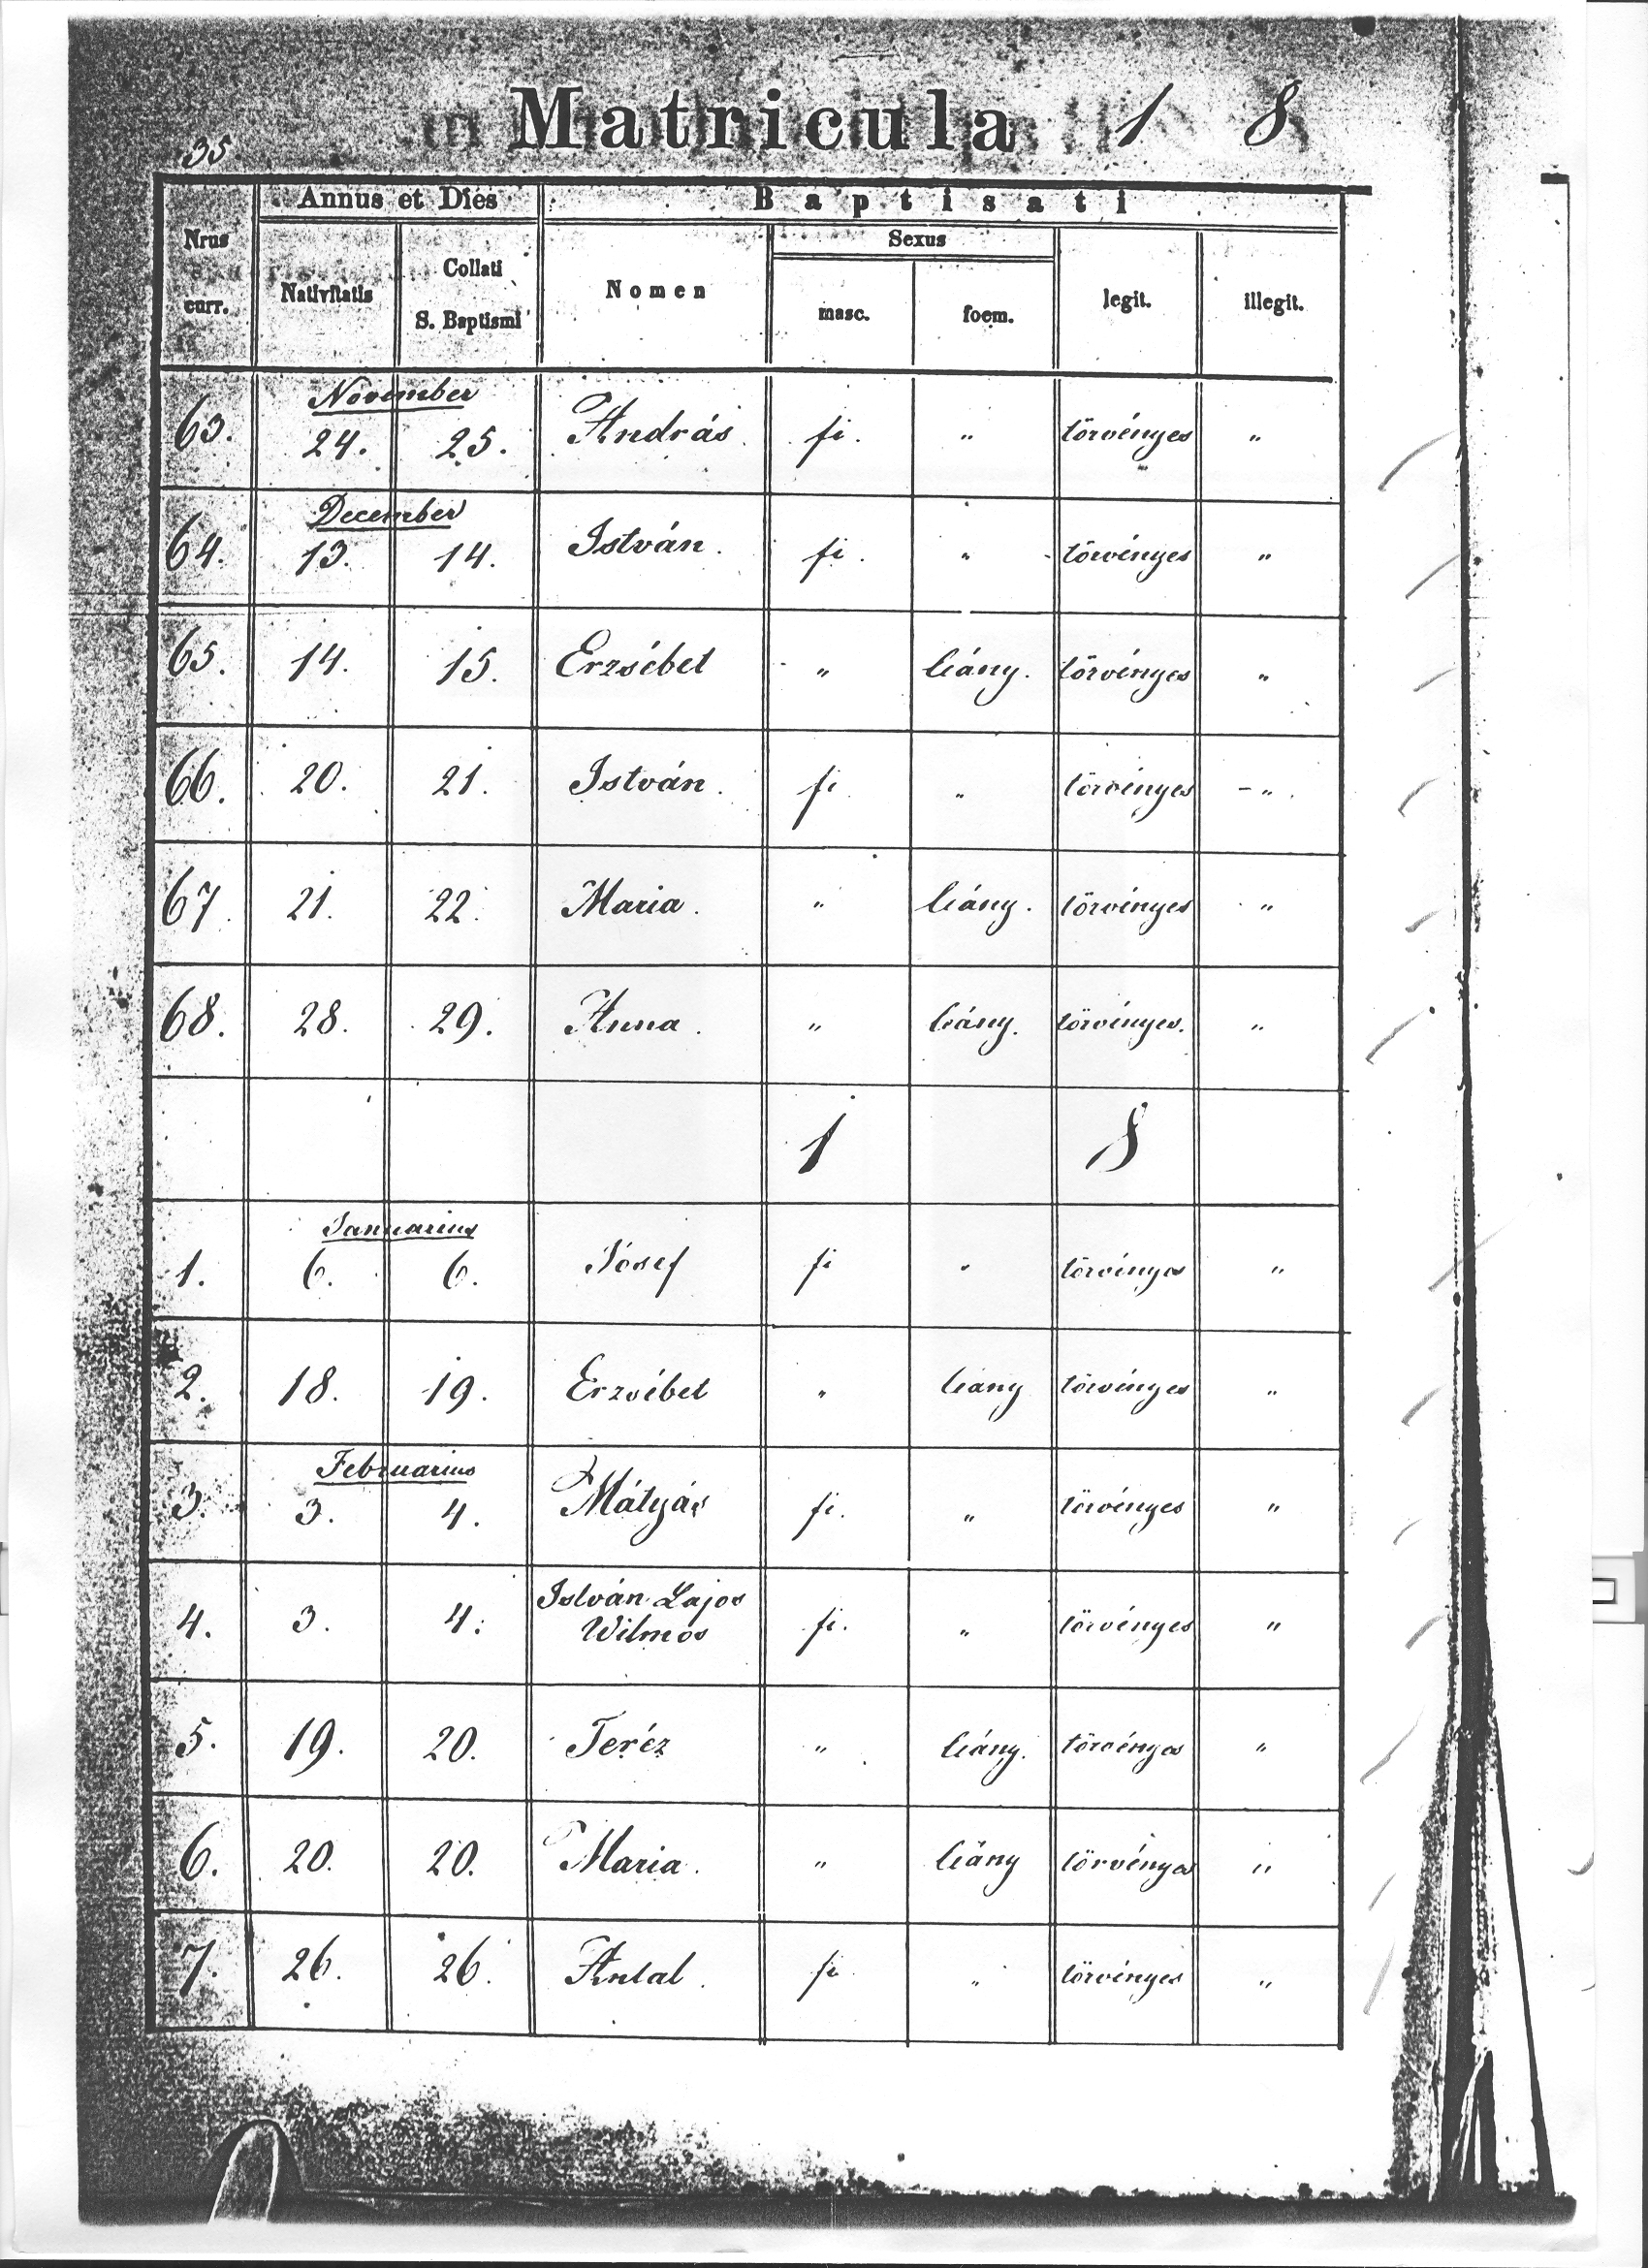 35
Matricula 1 8
Annus et Dies Baptisati
Nrus curr. Nativitatis Collati S. Baptismi Nomen Sexus legit. illegit.
masc. foem.
November
63. 24. 25. András fi. " törvényes "
December
64. 13. 14. István. fi. " törvényes "
65. 14. 15. Erzsébet " leány. törvényes "
66. 20. 21. István. fi " törvényes - "
67. 21. 22. Maria. " leány. törvényes "
68. 28. 29. Anna. " leány. törvényes. "
1 8
Januarius
1. 6. 6. Jósef fi " törvényes "
2. 18. 19. Erzsébet " leany törvényes "
Februarius
3. 3. 4. Mátyás fi. " törvényes "
4. 3. 4. István Lajos fi. " törvényes "
Wilmos
5. 19. 20. Teréz " leány. törvényes "
6. 20. 20. Maria. " leány törvényes "
7. 26. 26. Antal. fi " törvényes "